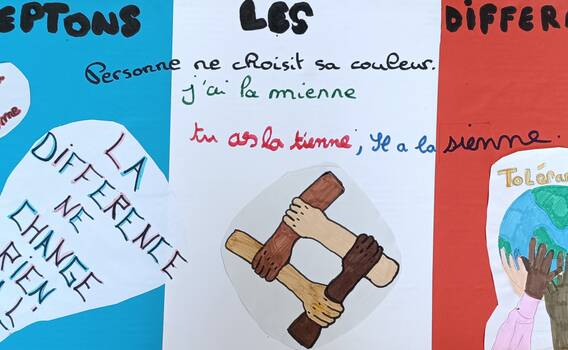 EPTONS LES DIFFERE
Personne ne choisit sa couleur.
j'ai la mienne
tu as la tienne, Il a la sienne.
LA
DIFFERENCE
NE
CHANGE
RIEN
Toléran